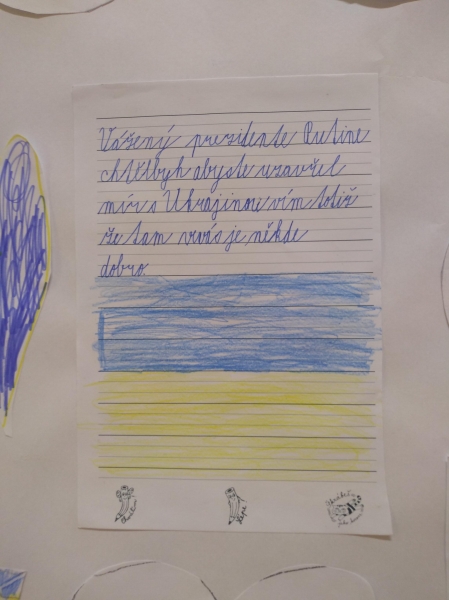 Vážený prezidente Putine
chtělbyh abyste uzavřel
mír s Ukrajinou vím totiž
že tam vevás je někde
dobro.